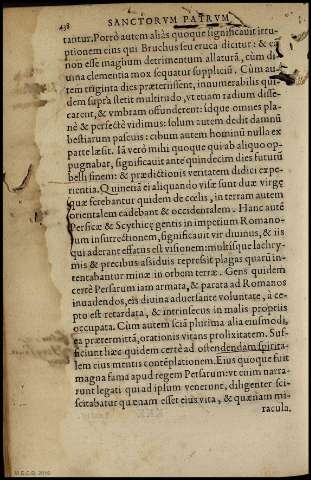 438 SANCTORVM PATRVM
tantur. Porrò autem aliàs quoque significauit irru-
ptionem eius qui Bruchus seu eruca dicitur: & eā
non esse magnum detrimentum allaturā, cùm di-
uina clementia mox sequatur suppliciū. Cùm au-
tem triginta dies præterissent, innumerabilis qui-
dem suprà stetit multitudo, vt etiam radium diffe-
carent, & vmbram offunderent: idque omnes pla-
nè & perfectè vidimus: solum autem dedit damnū
bestiarum pascuis: cibum autem hominū nulla ex
parte læsit. Iā verò mihi quoque qui ab aliquo op-
pugnabar, significauit ante quindecim dies futurū
belli finem: & prædictionis veritatem didici expe-
rientia. Quinetiā ei aliquando visæ sunt duæ virgę
quæ ferebantur quidem de cœlis, in terram autem
orientalem cadebant & occidentalem. Hanc autē
Persicæ & Scythicę gentis in imperium Romano-
rum insurrectionem, significauit vir diuinus, & iis
qui aderant effatus est visionem: multisque lachry-
mis & precibus assiduis repressit plagas quarū in-
tentabantur minæ in orbem terræ. Gens quidem
certè Persarum iam armata, & parata ad Romanos
inuadendos, eis diuina aduersante voluntate, à cę-
pto est retardata, & intrinsecus in malis propriis
occupata. Cùm autem sciā plurima alia eiusmodi,
ea prætermittā, orationis vitans prolixitatem. Suf-
ficiunt hæc quidem certè ad ostendendam spirita-
lem eius mentis contēplationem. Eius quoque fuit
magna fama apud regem Persarum: vt enim narra-
runt legati qui ad ipsum venerunt, diligenter sci-
scitabatur quænam esset eius vita, & quænam mi-
racula.